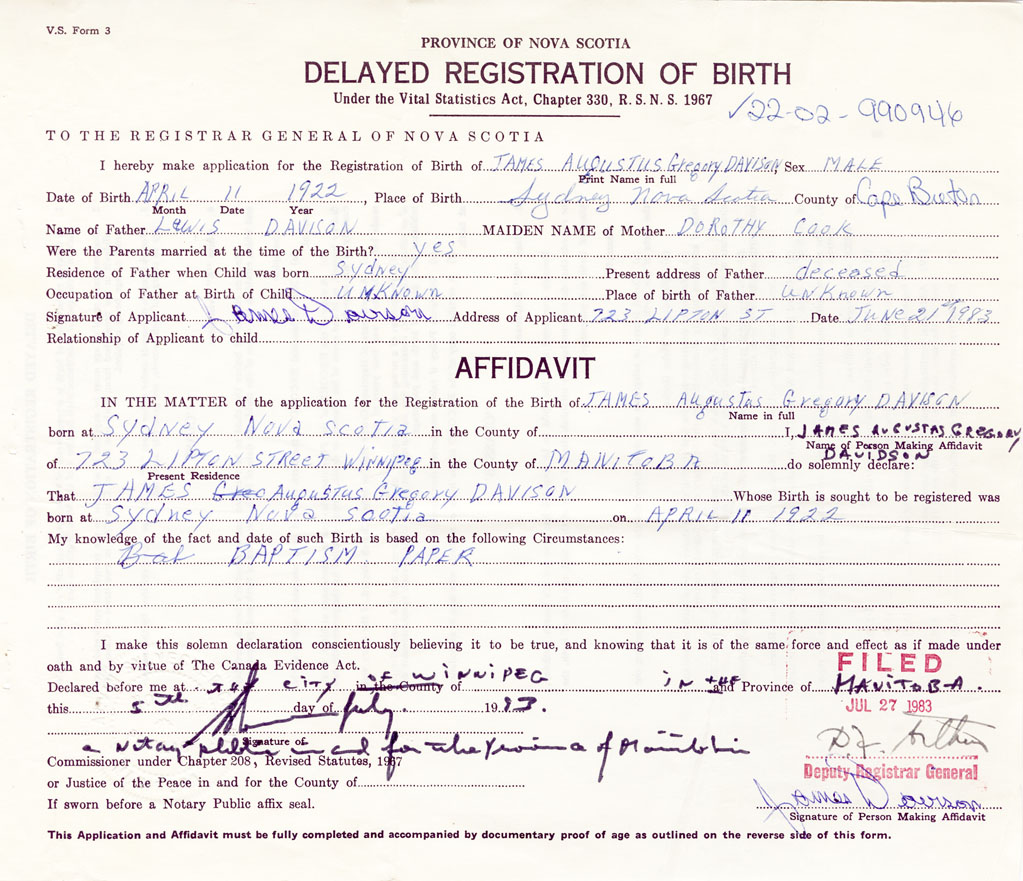 V.S. Form 3
PROVINCE OF NOVA SCOTIA
DELAYED REGISTRATION OF BIRTH
Under the Vital Statistics Act, Chapter 330, R.S.N.S. 1967
✓22-02-990946
TO THE REGISTRAR GENERAL OF NOVA SCOTIA
I hereby make application for the Registration of Birth of JAMES AUgUSTUS Gregory DAVISON, Sex MALE
Print Name in full
Date of Birth APRIL 11 1922, Place of Birth Sydney Nova Scotia County of Cape Breton
Month Date Year
Name of Father Lewis DAVISON MAIDEN NAME of Mother DOROTHY COOK
Were the Parents married at the time of the Birth? yes
Residence of Father when Child was born Sydney Present address of Father deceased
Occupation of Father at Birth of Child UNKnown Place of birth of Father UNKnown
Signature of Applicant James Davison Address of Applicant 723 LIPTON ST Date JUNE 21st 1983
Relationship of Applicant to child
AFFIDAVIT
IN THE MATTER of the application for the Registration of the Birth of JAMES Augustas Gregory DAVISON
Name in full
born at Sydney Nova Scotia in the County of I, JAMES AUGUSTAS GREGORY
Name of Person Making Affidavit
DAVIDSON
of 723 LIPTON STREET Winnipeg in the County of MANITOBA do solemnly declare:
Present Residence
That JAMES Greg Augustus Gregory DAVISON Whose Birth is sought to be registered was
born at Sydney Nova Scotia on APRIL 11 1922
My knowledge of the fact and date of such Birth is based on the following Circumstances:
Bat BAPTISM PAPER
I make this solemn declaration conscientiously believing it to be true, and knowing that it is of the same force and effect as if made under
oath and by virtue of The Canada Evidence Act.
FILED
Declared before me at THE CITY in the County of OF WINNIPEG IN THE and Province of MANITOBA.
this 5th day of July. 1983.
JUL 27 1983
Signature of
a Notary Public in and for the Province of Manitoba
Commissioner under Chapter 208, Revised Statutes, 1967
Deputy Registrar General
or Justice of the Peace in and for the County of
James Davison
If sworn before a Notary Public affix seal.
Signature of Person Making Affidavit
This Application and Affidavit must be fully completed and accompanied by documentary proof of age as outlined on the reverse side of this form.